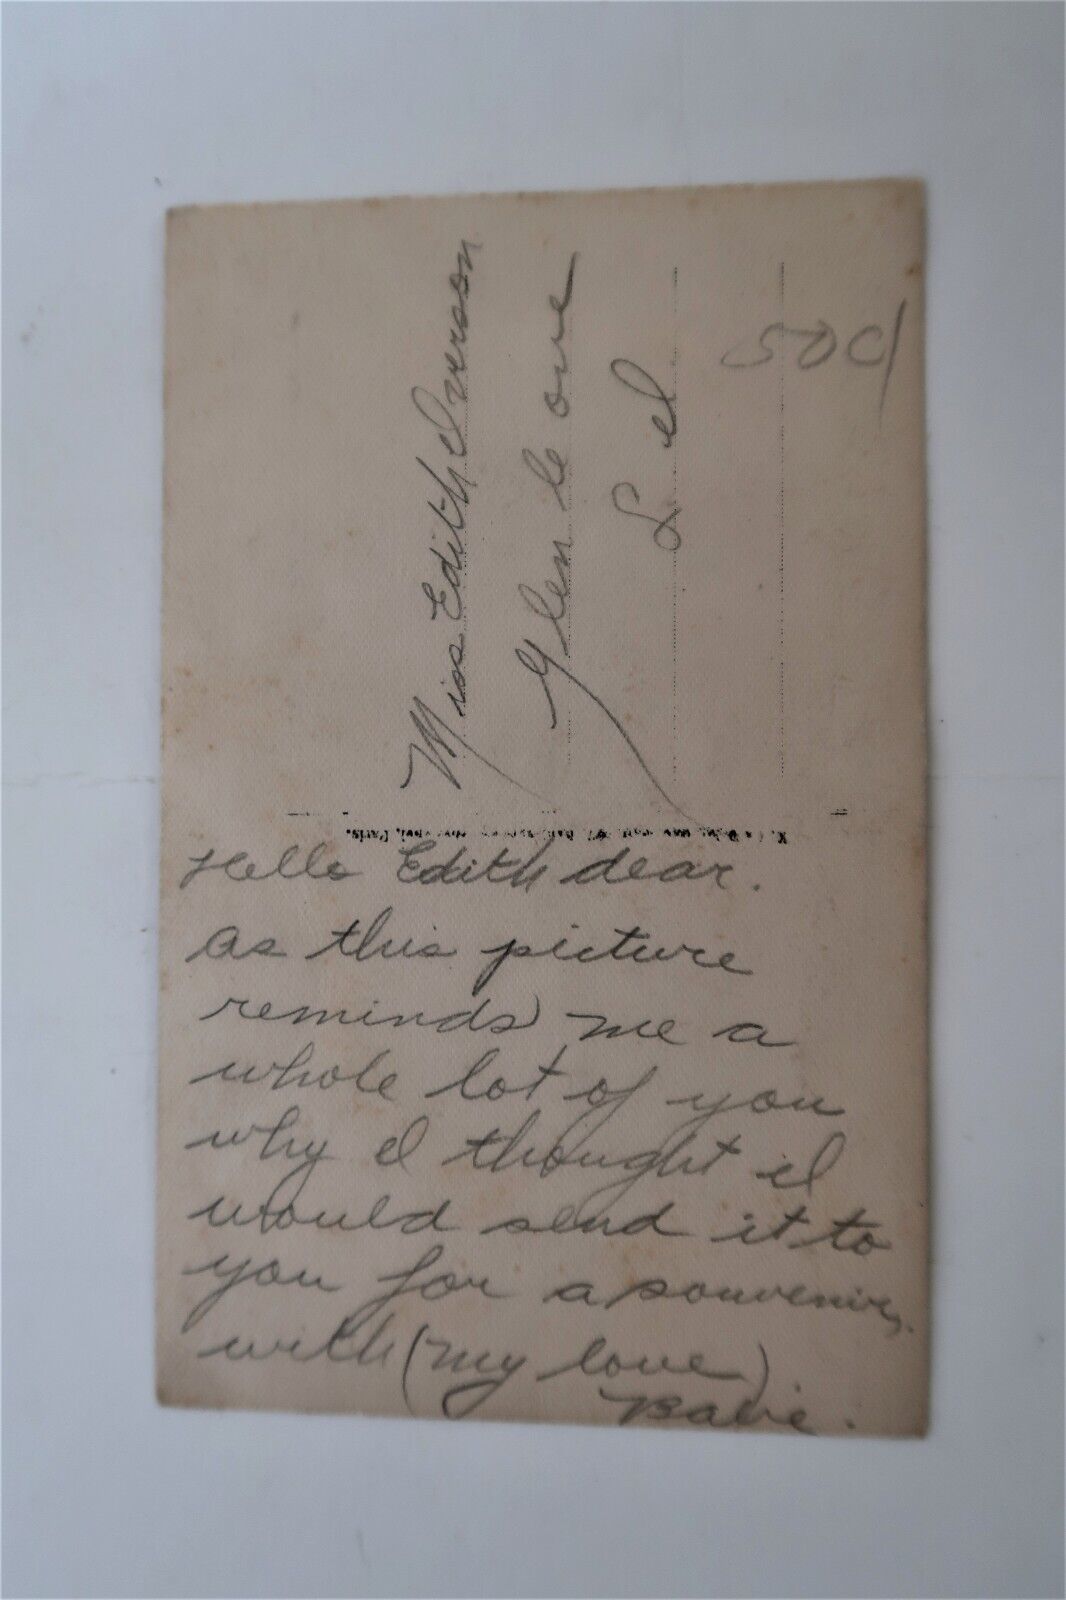 Miss Edith Iverson
Glen Cove
L I
50c/
Paris.
Hello Edith dear.
as this picture
reminds me a
whole lot of you
why I thought I
would send it to
you for a souvenir,
with (my love).